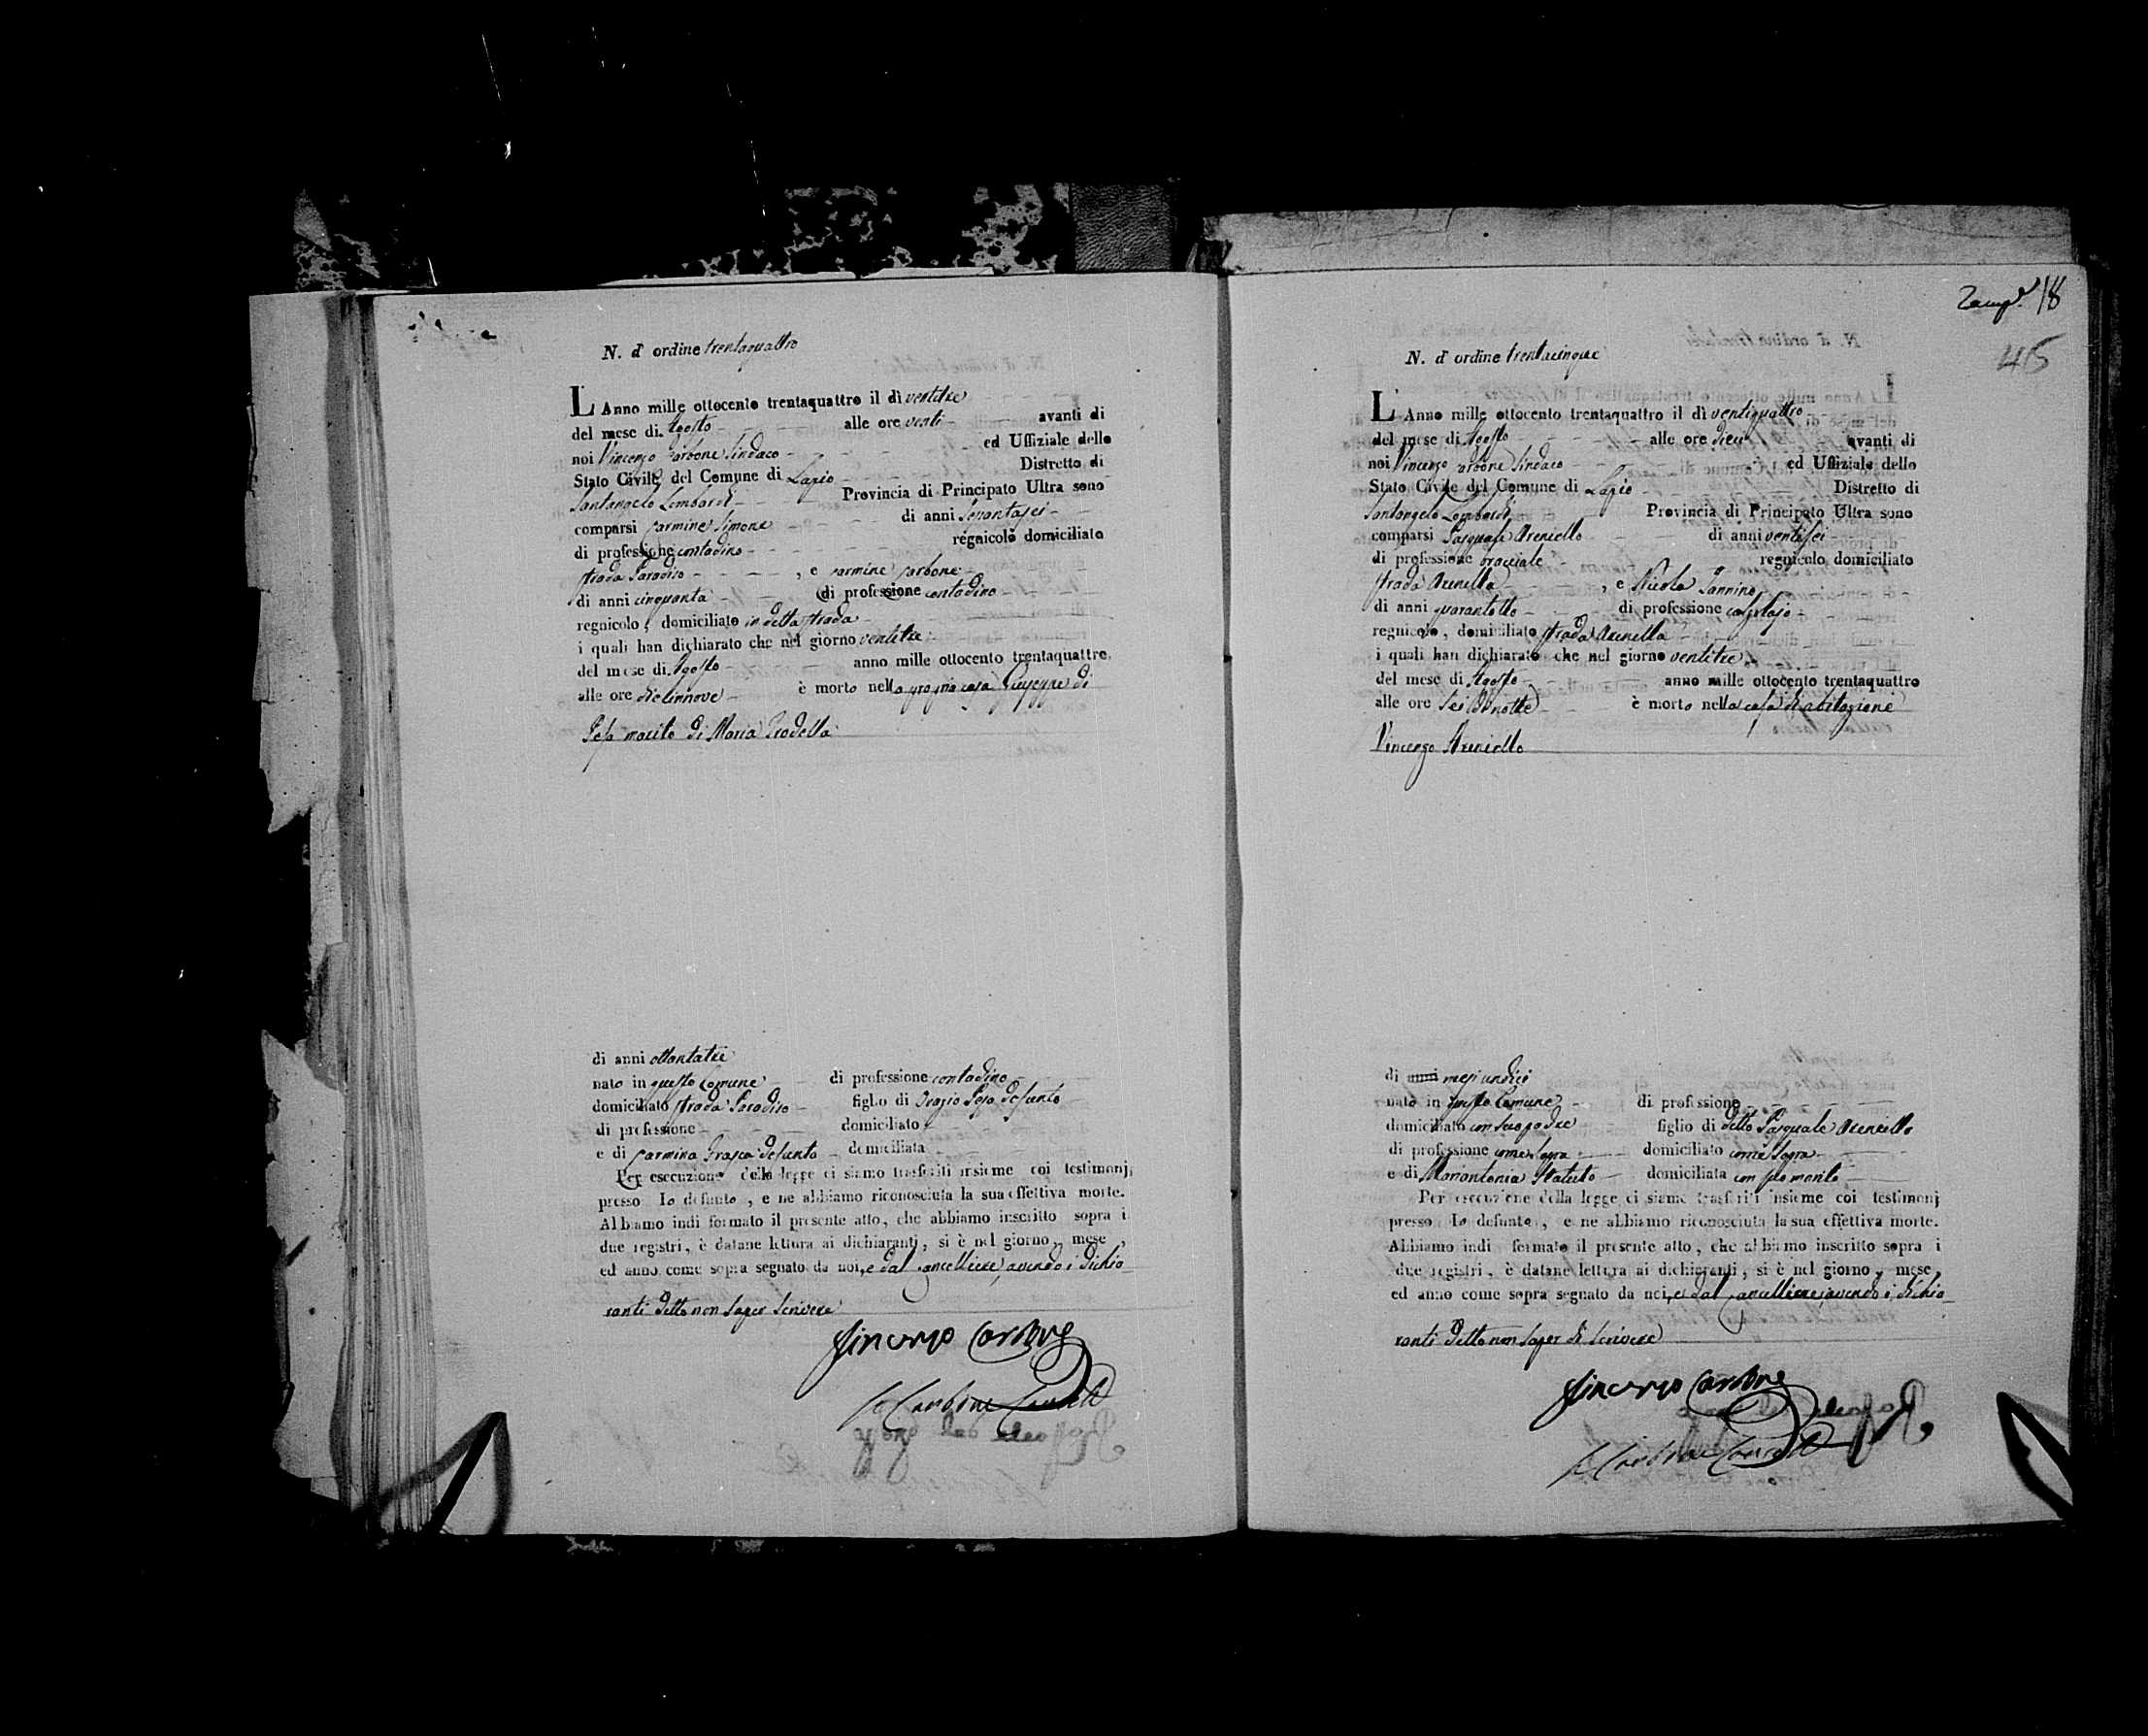 N. d' ordine trentaquattro
L' Anno mille ottocento trentaquattro il dì ventitre
del mese di Agosto alle ore venti avanti di
noi Vincenzo Carbone Sindaco ed Uffiziale dello
Stato Civile del Comune di Lapio Distretto di
Santangelo Lombardi Provincia di Principato Ultra sono
comparsi Carmine Simone di anni
di professione contadino regnicolo domiciliato
strada Paradiso , e Carmine Carbone
di anni cinquanta di professione contadino
regnicolo, domiciliato in detta strada
i quali han dichiarato che nel giorno ventitre
del mese di Agosto anno mille ottocento trentaquattro
alle ore diecinnove è morto nella propria casa Giuseppe di
Pesa marito di Maria
di anni ottantatre
nato in questo Comune di professione contadino
domiciliato strada Paradiso figlio di Orazio defunto
di professione domiciliato
e di Carmina defunta domiciliata
Per esecuzione della legge ci siamo trasferiti insieme coi testimonj
presso lo defunto, e ne abbiamo riconosciuta la sua effettiva morte.
Abbiamo indi formato il presente atto, che abbiamo inscritto sopra i
due registri, è datane lettura ai dichiaranti, si è nel giorno, mese,
ed anno come sopra segnato da noi, e dal Cancelliere, avendo i dichia
ranti detto non saper scrivere
Vincenzo Carbone
Carbone
18
45
N. d' ordine trentacinque
L' Anno mille ottocento trentaquattro il dì ventiquattro
del mese di Agosto alle ore dieci avanti di
noi Vincenzo Carbone Sindaco ed Uffiziale dello
Stato Civile del Comune di Lapio Distretto di
Santangelo Lombardi Provincia di Principato Ultra sono
comparsi Pasquale Areniello di anni ventisei
di professione bracciale regnicolo domiciliato
strada Arenella , e Nicola Iannino
di anni quarantotto di professione calzolajo
regnicolo, domiciliato strada Arenella
i quali han dichiarato che nel giorno ventitre
del mese di Agosto anno mille ottocento trentaquattro
alle ore sei di notte è morto nella casa di abitazione
Vincenzo Areniello
di anni mesi undici
nato in questo Comune di professione
domiciliato con suo padre figlio di detto Pasquale Areniello
di professione come sopra domiciliato come sopra
e di Mariantonia Statuto domiciliata con suo marito
Per esecuzione della legge ci siamo trasferiti insieme coi testimonj
presso lo defunto, e ne abbiamo riconosciuta la sua effettiva morte.
Abbiamo indi formato il presente atto, che abbiamo inscritto sopra i
due registri, è datane lettura ai dichiaranti, si è nel giorno, mese,
ed anno come sopra segnato da noi, e dal Cancelliere, avendo i dichia
ranti detto non saper di scrivere
Vincenzo Carbone
Carbone